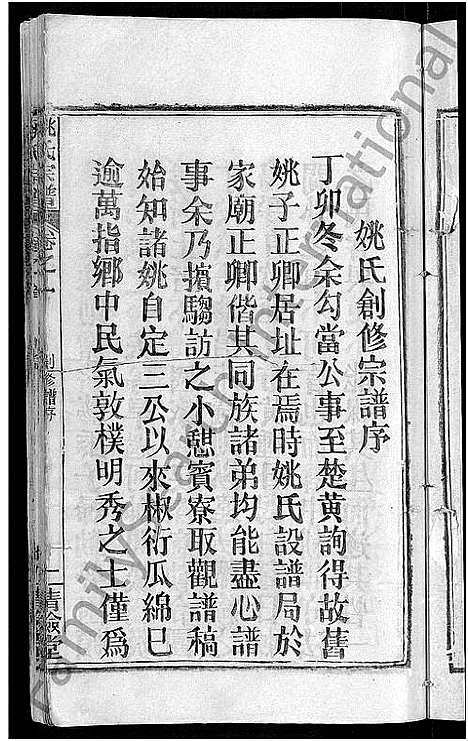 姚氏創修宗譜序
丁卯冬余勾當公事至楚黄詢得故舊
姚子正卿居址在焉時姚氏設譜局於
家廟正卿偕其同族諸弟均能盡心譜
事余乃擯騶訪之小憩賓寮取觀譜稿
始知諸姚自定三公以來椒衍瓜綿已
逾萬指鄉中民氣敦樸明秀之士僅爲
姚氏宗譜
卷之一
創修譜序
一
FamilySearch International